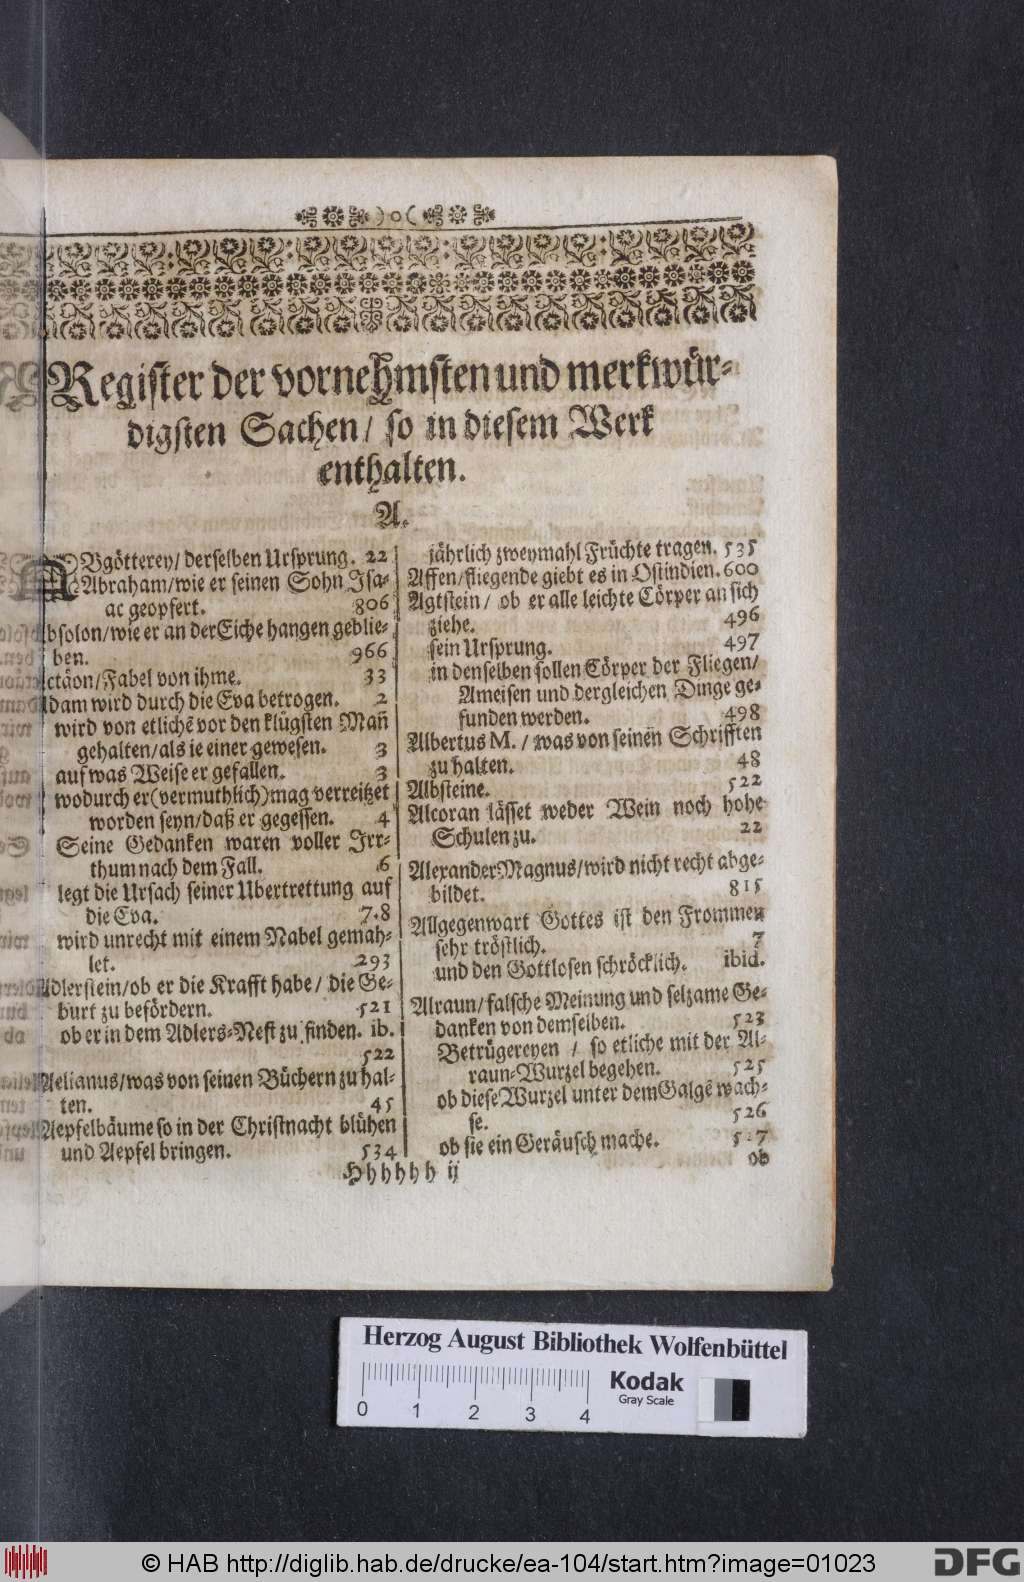 Register der vornehmsten und merkwür-
digsten Sachen / so in diesem Werk
enthalten.
A.
ABgötterey / derselben Ursprung. 22
Abraham / wie er seinen Sohn Isa-
ac geopfert. 806
bsolon / wie er an der Eiche hangen geblie-
ben. 966
ctäon / Fabel von ihme. 33
dam wird durch die Eva betrogen. 2
wird von etlichē vor den klügsten Mañ
gehalten / als ie einer gewesen. 3
auf was Weise er gefallen. 3
wodurch er (vermuthlich) mag verreitzet
worden seyn / daß er gegessen. 4
Seine Gedanken waren voller Irr-
thum nach dem Fall. 6
legt die Ursach seiner Ubertrettung auf
die Eva. 7.8
wird unrecht mit einem Nabel gemah-
let. 293
Adlerstein / ob er die Krafft habe / die Ge-
burt zu befördern. 521
ob er in dem Adlers-Nest zu finden. ib.
522
Aelianus / was von seinen Büchern zu hal-
ten. 45
Aepfelbäume so in der Christnacht blühen
und Aepfel bringen. 534
jährlich zweymahl Früchte tragen. 535
Affen / fliegende giebt es in Ostindien. 600
Agtstein / ob er alle leichte Cörper an sich
ziehe. 496
sein Ursprung. 497
in denselben sollen Cörper der Fliegen /
Ameisen und dergleichen Dinge ge-
funden werden. 498
Albertus M. / was von seinen Schrifften
zu halten. 48
Albsteine. 522
Alcoran lässet weder Wein noch hohe
Schulen zu. 22
Alexander Magnus / wird nicht recht abge-
bildet. 815
Allgegenwart Gottes ist den Frommen
sehr tröstlich. 7
und den Gottlosen schröcklich. ibid.
Alraun / falsche Meinung und selzame Ge-
danken von demselben. 523
Betrügereyen / so etliche mit der Al-
raun-Wurzel begehen. 525
ob diese Wurzel unter dem Galgē wach-
se. 526
ob sie ein Geräusch mache. 527
ob
Hhhhhh ij
Herzog August Bibliothek Wolfenbüttel
0 1 2 3 4
Kodak
Gray Scale
© HAB http://diglib.hab.de/drucke/ea-104/start.htm?image=01023
DFG